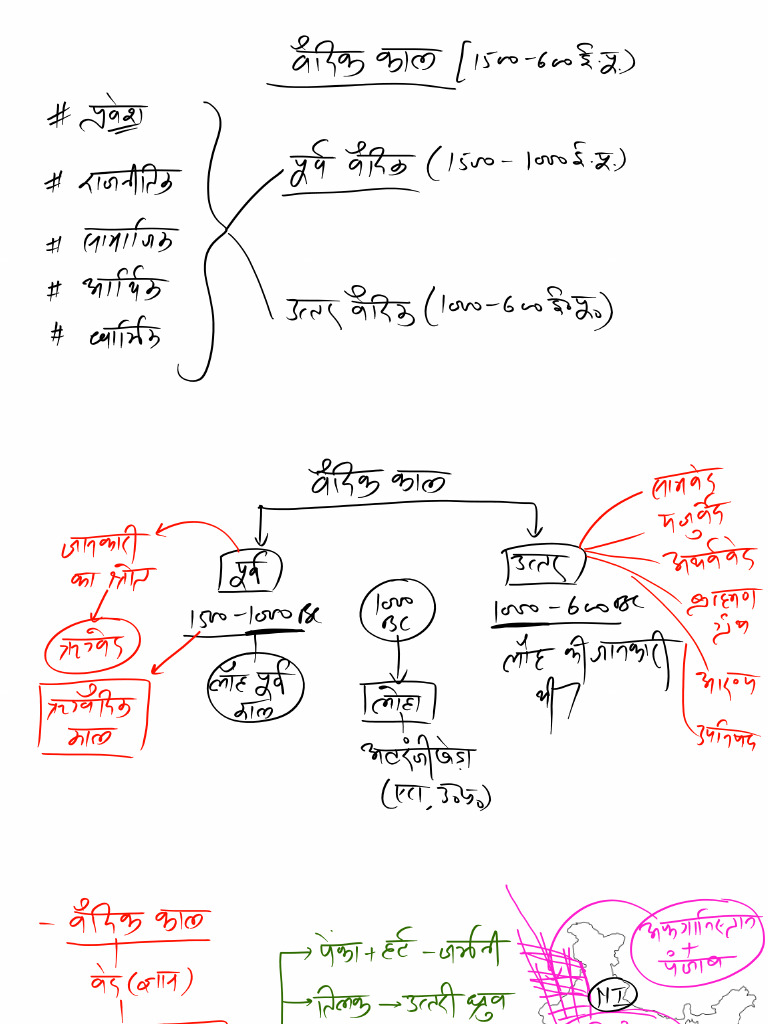 वैदिक काल [1500-600 ई.पू.)
# प्रवेश
# राजनीतिक
# सामाजिक
# आर्थिक
# धार्मिक
पूर्व वैदिक (1500-1000 ई.पू.)
उत्तर वैदिक (1000-600 ई०पू०)
वैदिक काल
पूर्व
1500-1000 BC
लौह पूर्व
काल
जानकारी
का स्रोत
ऋग्वेद
ऋग्वैदिक
काल
1000
BC
लोहा
अतरंजीखेड़ा
(एटा, उ०प्र०)
उत्तर
1000-600 BC
लौह की जानकारी
थी
सामवेद
यजुर्वेद
अथर्ववेद
ब्राह्मण
ग्रंथ
आरण्यक
उपनिषद
- वैदिक काल
वेद (ज्ञान)
→ पेंका + हर्ट - जर्मनी
→ तिलक → उत्तरी ध्रुव
अफगानिस्तान
+
पंजाब
NI